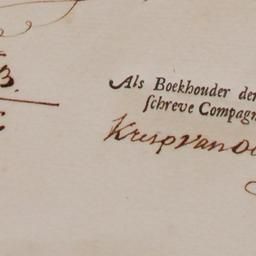 B.
Als Boekhouder der
ſchreve Compagn
Kresp Van D